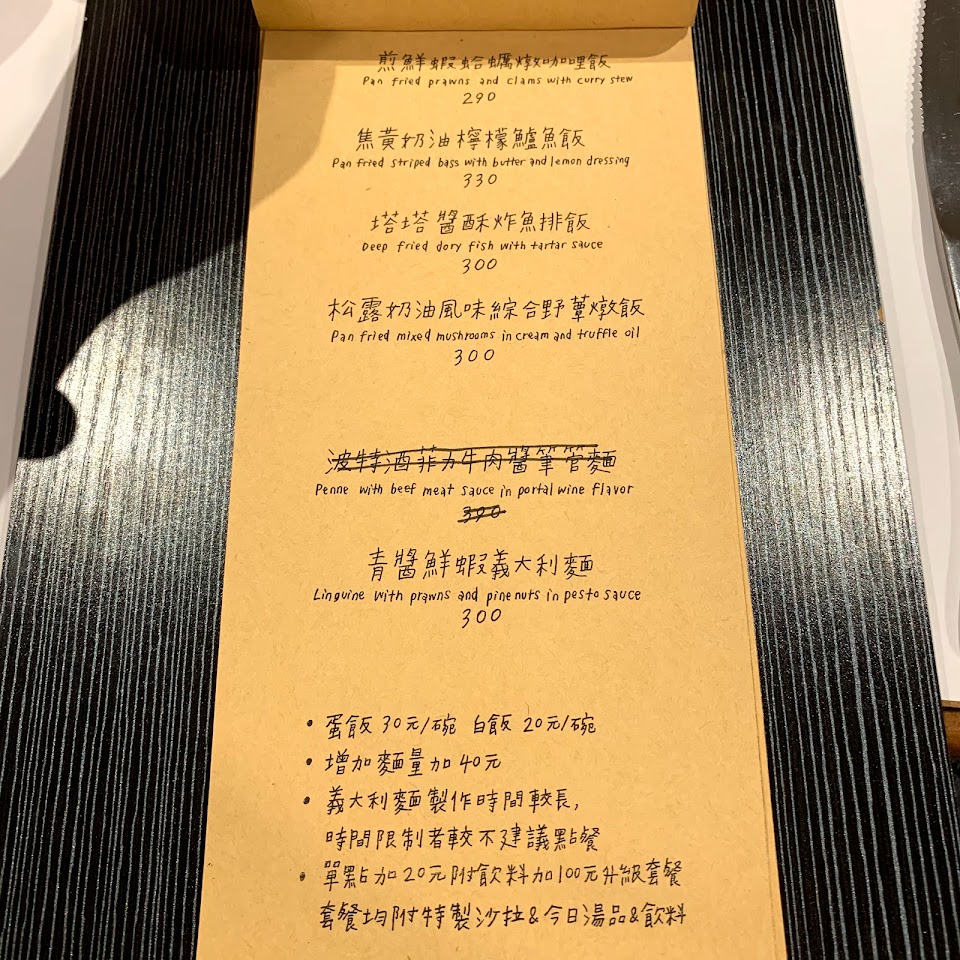 煎鮮蝦蛤蠣燉咖哩飯
Pan fried prawns and clams with curry stew
290
焦黃奶油檸檬鱸魚飯
Pan fried striped bass with butter and lemon dressing
330
塔塔醬酥炸魚排飯
Deep fried dory fish with tartar sauce
300
松露奶油風味綜合野蕈燉飯
Pan fried mixed mushrooms in cream and truffle oil
300
波特酒菲力牛肉醬筆管麵
Penne with beef meat sauce in portal wine flavor
390
青醬鮮蝦義大利麵
Linguine with prawns and pine nuts in pesto sauce
300
• 蛋飯 30元/碗 白飯 20元/碗
• 增加麵量加 40元
• 義大利麵製作時間較長,
時間限制者較不建議點餐
• 單點加20元附飲料加100元升級套餐
套餐均附特製沙拉&今日湯品&飲料